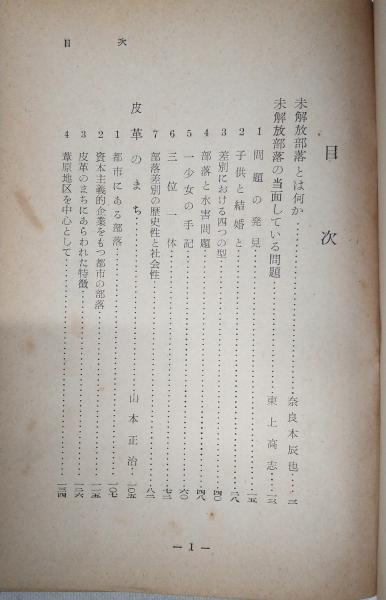 目次
目次
未解放部落とは何か……奈良本辰也…三
未解放部落の当面している問題……東上高志…一三
1 問題の発見……一五
2 子供と結婚と……二八
3 差別における四つの型……四〇
4 部落と水害問題……四八
5 一少女の手記……六〇
6 三位一体……七二
7 部落差別の歴史性と社会性……八二
皮革のまち……山本正治…一〇五
1 都市にある部落……一〇七
2 資本主義的企業をもつ都市の部落……一一五
3 皮革のまちにあらわれた特徴……一二六
4 葦原地区を中心として……一三四
— I —